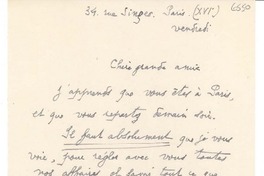 34. rue Singer. Paris. (XVIᵉ) 6550
vendredi
Chère grande amie
J'apprends que vous êtes à Paris,
et que vous repartez demain soir.
Il faut absolument que je vous
voie, pour régler avec vous toutes
nos affaires et savoir tout ce que